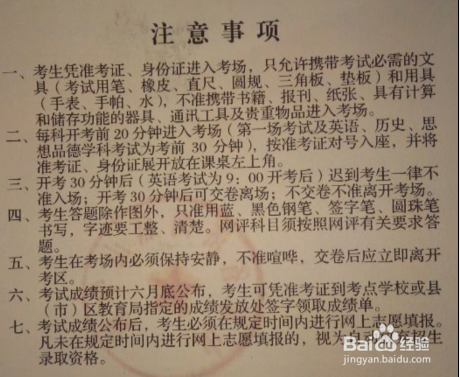 注意事项
一、考生凭准考证、身份证进入考场，只允许携带考试必需的文
具（考试用笔、橡皮、直尺、圆规、三角板、垫板）和用具
（手表、手帕、水），不准携带书籍、报刊、纸张、具有计算
和储存功能的器具、通讯工具及贵重物品进入考场。
二、每科开考前 20 分钟进入考场（第一场考试及英语、历史、思
想品德学科考试为考前 30 分钟），按准考证对号入座，并将
准考证、身份证展开放在课桌左上角。
三、开考 30 分钟后（英语考试为 9：00 开考后）迟到考生一律不
准入场；开考 30 分钟后可交卷离场；不交卷不准离开考场。
四、考生答题除作图外，只准用蓝、黑色钢笔、签字笔、圆珠笔
书写，字迹要工整、清楚。网评科目须按照网评有关要求答
题。
五、考生在考场内必须保持安静，不准喧哗，交卷后应立即离开
考区。
六、考试成绩预计六月底公布，考生可凭准考证到考点学校或县
（市）区教育局指定的成绩发放处签字领取成绩单。
七、考试成绩公布后，考生必须在规定时间内进行网上志愿填报。
凡未在规定时间内进行网上志愿填报的，视为
录取资格。
Baidu 经验
jingyan.baidu.com